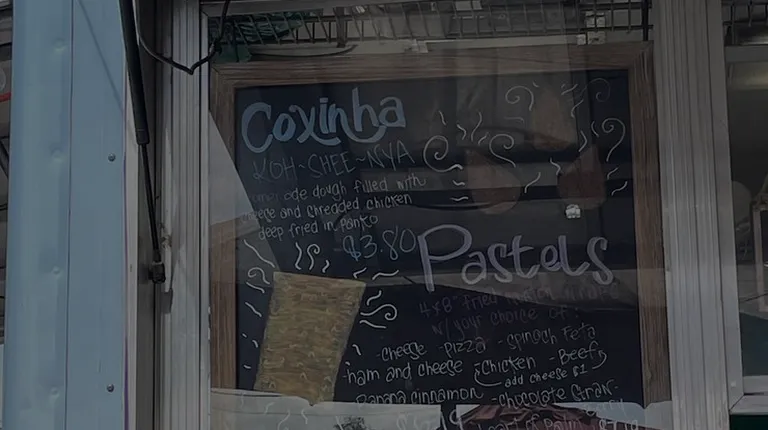 Coxinha
KOH-SHEE-NYA
dough filled with
and shredded chicken
deep fried in panko
-$3.80
Pastels
4x8" fried
w/ your choice of:
-cheese -Pizza -Spinach Feta
-ham and cheese -Chicken -Beef
add cheese $1
Banana cinnamon -chocolate Straw-
heart of Palm